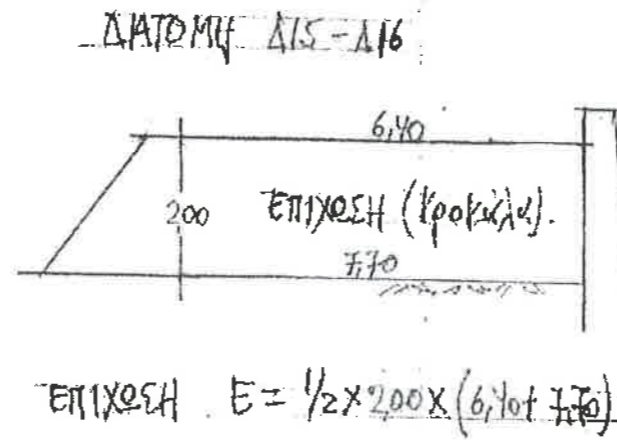 ΔΙΑΤΟΜΗ Δ15-Δ16
6,40
200
ΕΠΙΧΩΣΗ (Κροκάλα).
7,70
ΕΠΙΧΩΣΗ E = 1/2 x 2,00 x (6,40 + 7,70)